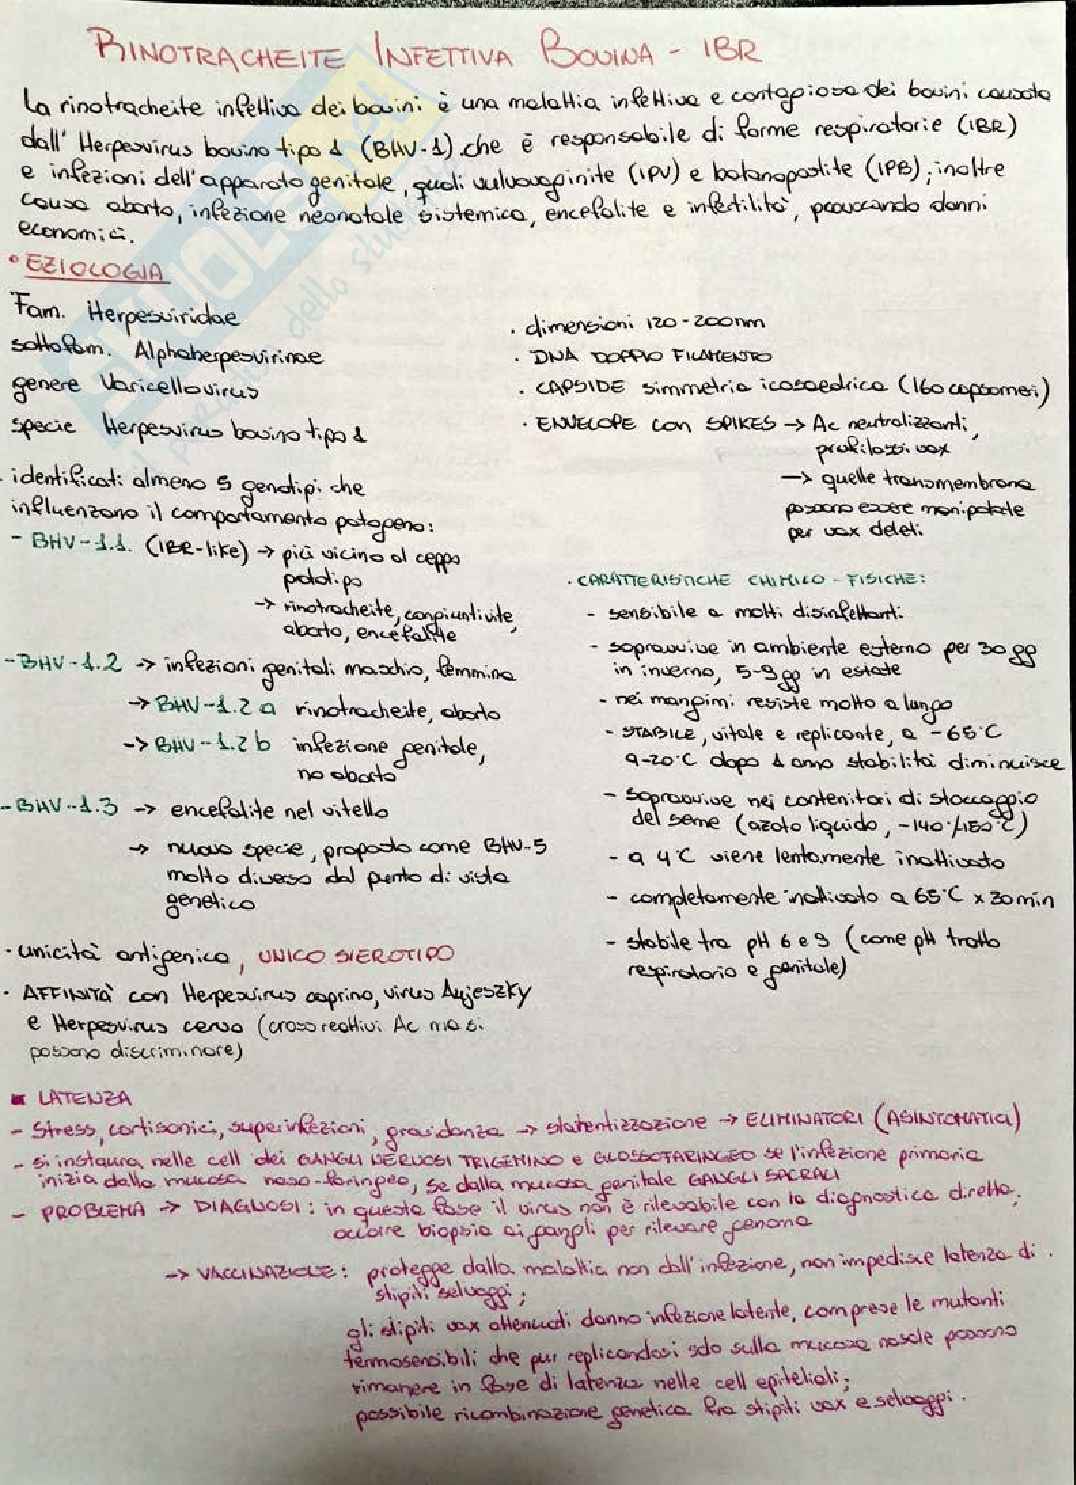 RINOTRACHEITE INFETTIVA BOVINA - IBR
La rinotracheite infettiva dei bovini è una malattia infettiva e contagiosa dei bovini causata
dall'Herpesvirus bovino tipo 1 (BHV-1) che è responsabile di forme respiratorie (IBR)
e infezioni dell'apparato genitale, quali vulvovaginite (IPV) e balanopostite (IPB); inoltre
causa aborto, infezione neonatale sistemica, encefalite e infertilità, provocando danni
economici.
• EZIOLOGIA
Fam. Herpesviridae
sottofam. Alphaherpesvirinae
genere Varicellovirus
specie Herpesvirus bovino tipo 1
· identificati almeno 5 genotipi che
influenzano il comportamento patogeno:
- BHV-1.1. (IBR-like) → più vicino al ceppo
prototipo
→ rinotracheite, congiuntivite,
aborto, encefalite
- BHV-1.2 → infezioni genitali maschio, femmina
→ BHV-1.2 a rinotracheite, aborto
→ BHV-1.2 b infezione genitale,
no aborto
- BHV-1.3 → encefalite nel vitello
→ nuova specie, proposta come BHV-5
molto diverso dal punto di vista
genetico
· unicità antigenica, UNICO SIEROTIPO
· AFFINITÀ con Herpesvirus caprino, virus Aujeszky
e Herpesvirus cervo (crossreattivi Ac ma si
possono discriminare)
· dimensioni 120-200nm
· DNA DOPPIO FILAMENTO
· CAPSIDE simmetria icosaedrica (160 capsomeri)
· ENVELOPE con SPIKES → Ac neutralizzanti,
profilassi vax
→ quelle transmembrana
possono essere manipolate
per vax deleti.
· CARATTERISTICHE CHIMICO-FISICHE:
- sensibile a molti disinfettanti
- sopravvive in ambiente esterno per 30 gg
in inverno, 5-9 gg in estate
- nei mangimi resiste molto a lungo
- STABILE, vitale e replicante, a -65°C
a -20°C dopo 1 anno stabilità diminuisce
- sopravvive nei contenitori di stoccaggio
del seme (azoto liquido, -140°/180°C)
- a 4°C viene lentamente inattivato
- completamente inattivato a 65°C x 30min
- stabile tra pH 6 e 9 (come pH tratto
respiratorio e genitale)
LATENZA
- Stress, cortisonici, superinfezioni, gravidanza → slatentizzazione → ELIMINATORI (ASINTOMATICI)
- si instaura nelle cell dei GANGLI NERVOSI TRIGEMINO e GLOSSOFARINGEO se l'infezione primaria
inizia dalla mucosa naso-faringea, se dalla mucosa genitale GANGLI SACRALI
- PROBLEMA → DIAGNOSI: in questa fase il virus non è rilevabile con la diagnostica diretta,
occorre biopsia ai gangli per rilevare genoma
→ VACCINAZIONE: protegge dalla malattia non dall'infezione, non impedisce latenza di
stipiti selvaggi;
gli stipiti vax attenuati danno infezione latente, comprese le mutanti
termosensibili che pur replicandosi solo sulla mucosa nasale possono
rimanere in fase di latenza nelle cell epiteliali;
possibile ricombinazione genetica fra stipiti vax e selvaggi.